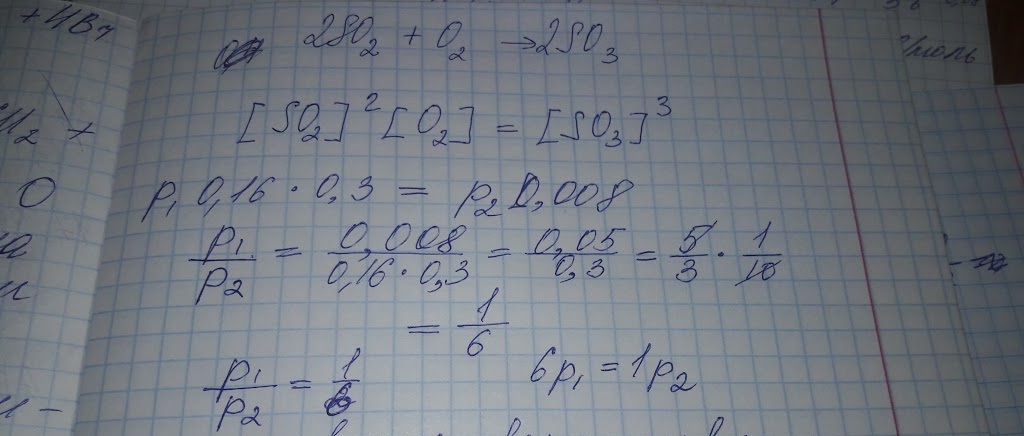 +HBr
2SO₂ + O₂ → 2SO₃
[SO₂]² [O₂] = [SO₃]³
p₁ 0,16 · 0,3 = p₂ 0,008
p₁/p₂ = 0,008/0,16·0,3 = 0,05/0,3 = 5/3 · 1/10
= 1/6
p₁/p₂ = 1/6
6p₁ = 1p₂